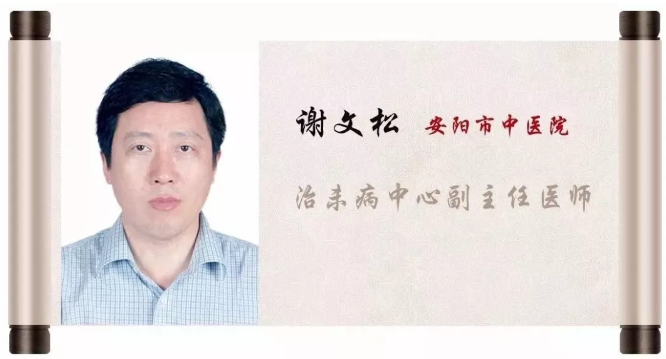 谢文松 安阳市中医院
治未病中心副主任医师